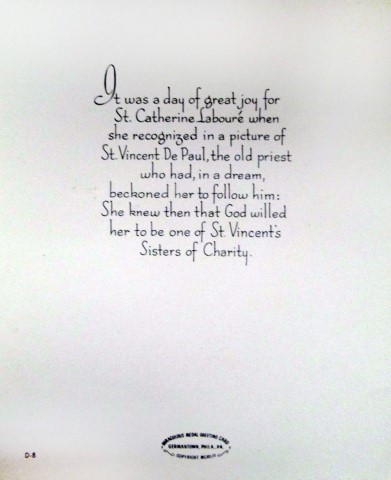 It was a day of great joy for
St. Catherine Labouré when
she recognized in a picture of
St. Vincent De Paul, the old priest
who had, in a dream,
beckoned her to follow him:
She knew then that God willed
her to be one of St. Vincent's
Sisters of Charity.
MIRACULOUS MEDAL GREETING CARD
GERMANTOWN, PHILA., PA.
COPYRIGHT
D-8